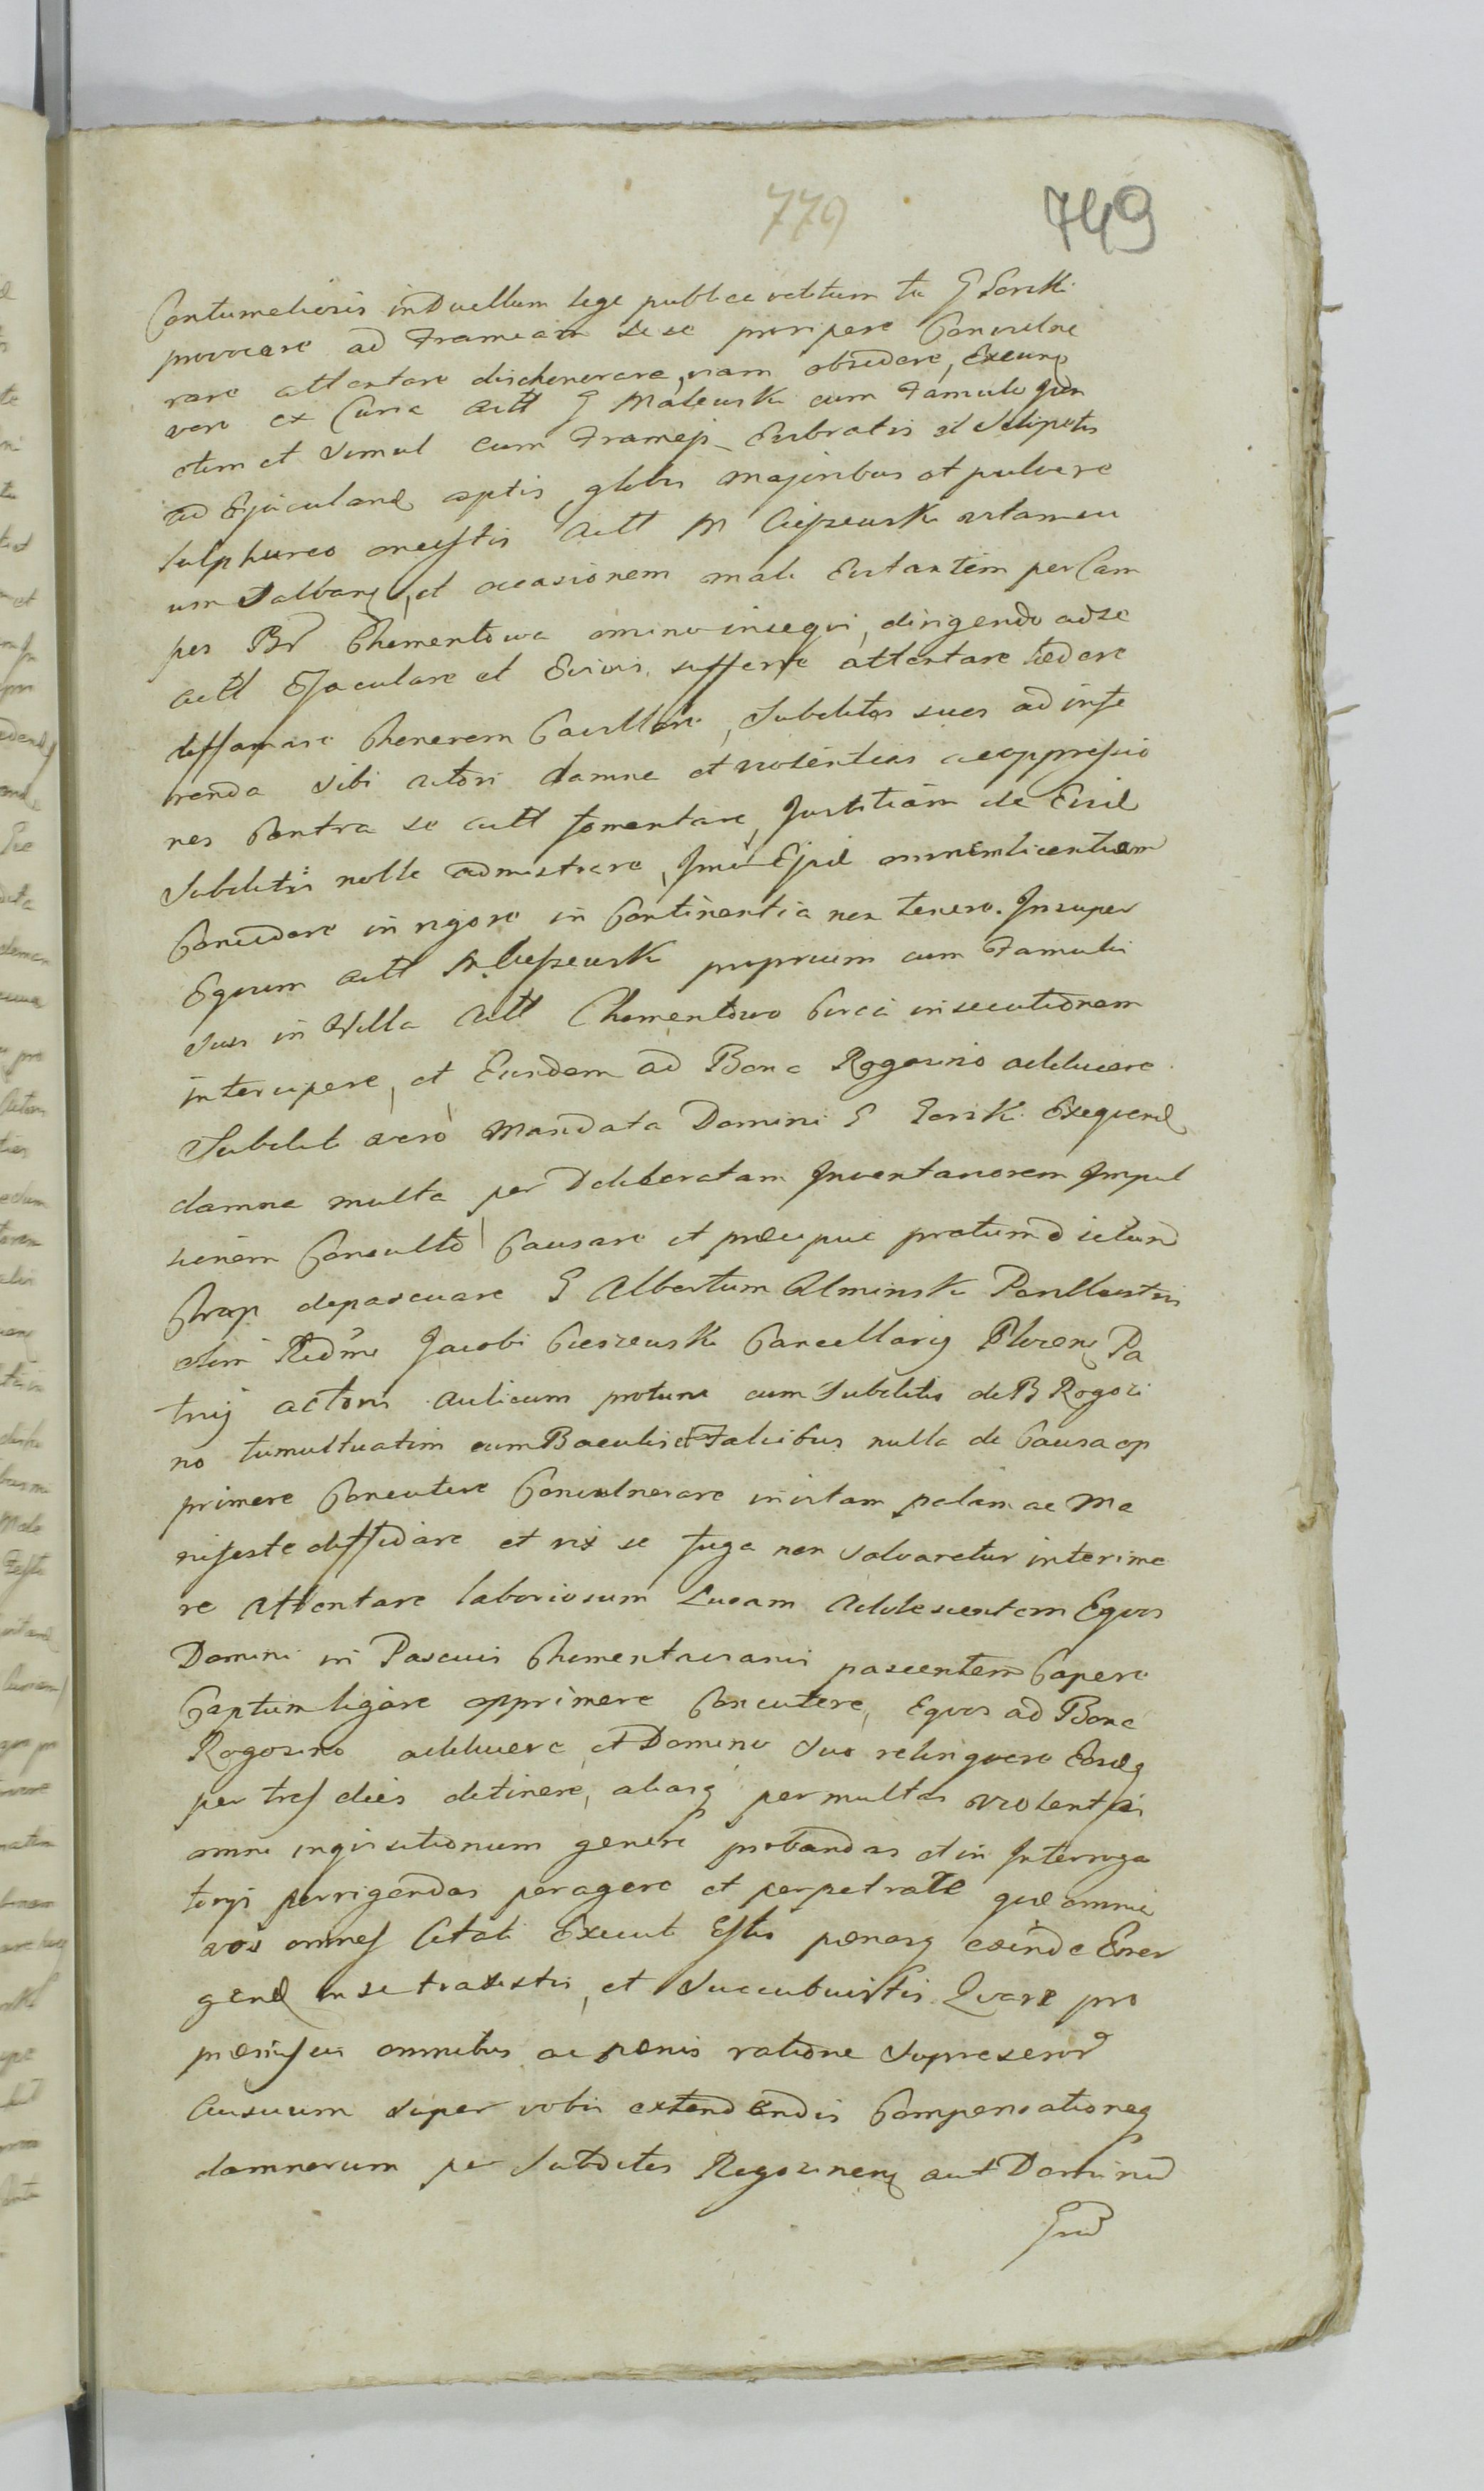 779
749
Contumeliosis in Duellum lege publice vetitum tu G Gorski
provocare ad Frameam se se proripere Convulne
rare attentare dischonorare, viam obsidere, Exeund
vero ex Curia actt G Maleuski cum Famulo
et simul cum Framejs Evibratis et Sclopetis
ad Ejaculand aptis globis majoribus et pulvere
sulphureo onustis actt M Cieszewski vitam su
um salvand, et occasionem mali Evitantem per Cam
pos Br Chementowa omnino insequi, dirigendo ad se
actt Ejaculare et suffere attentare lædere
diffamare Chonorem Cavillare, Subditos suos ad infe
renda sibi actori damna et violentias ac oppressio
nes Contra se actt fomentare, Justitiam de Eisd
Subditis nolle admistrare, Imo Ejsd omnem licentiam
Concedere in rigore in Continentia non tenere. Insuper
Equum actt M. Cieszewski proprium cum Famulis
suis in Villa actt Chementowo Circa insecutionem
intercipere, et Eundem ad Bona Rogozino adducere
Subditi vero Mandata Domini G Gorski Exequend
damna multa per Deliberatam Inventariorem Impul
sionem Consulto Causare et præcipue pratum dictum
Strop depascuare G Albertum Olminski Perillustris
olim Rndmi Jacobi Cieszewski Cancellarij Plocens Pa
truj actoris aulicum protunc cum Subditis de B Rogozi
no tumultuatim cum Baculis et Falcibus nulla de Causa op
primere Concutere Convulnerare in vitam palam ac Ma
nifeste diffidare et nis se fuga non salvaretur interime
re attentare laboriosum Lucam Adolescentem Equos
Domini in Pascuis Chementavianis pascentem Capere
Captum ligare opprimere Concutere, Equos ad Bona
Rogozino adducere, et Domino suo relinquere Eosdq
per tres dies detinere, aliasq permultas violentias
omni inquisitionum genere probandas et in Interroga
torijs porrigendas peragere et perpetrare quæ omnia
vos omnes Citati Estis pænasq exinde Emer
gend in se traxistis, et succubuistis Quare pro
præmissis omnibus ac pænis ratione supraexprssr
Ausuum super vobis extendendis Compensationeq
damnorum per Subditos Rogozinens aut Dominum
Ipsr